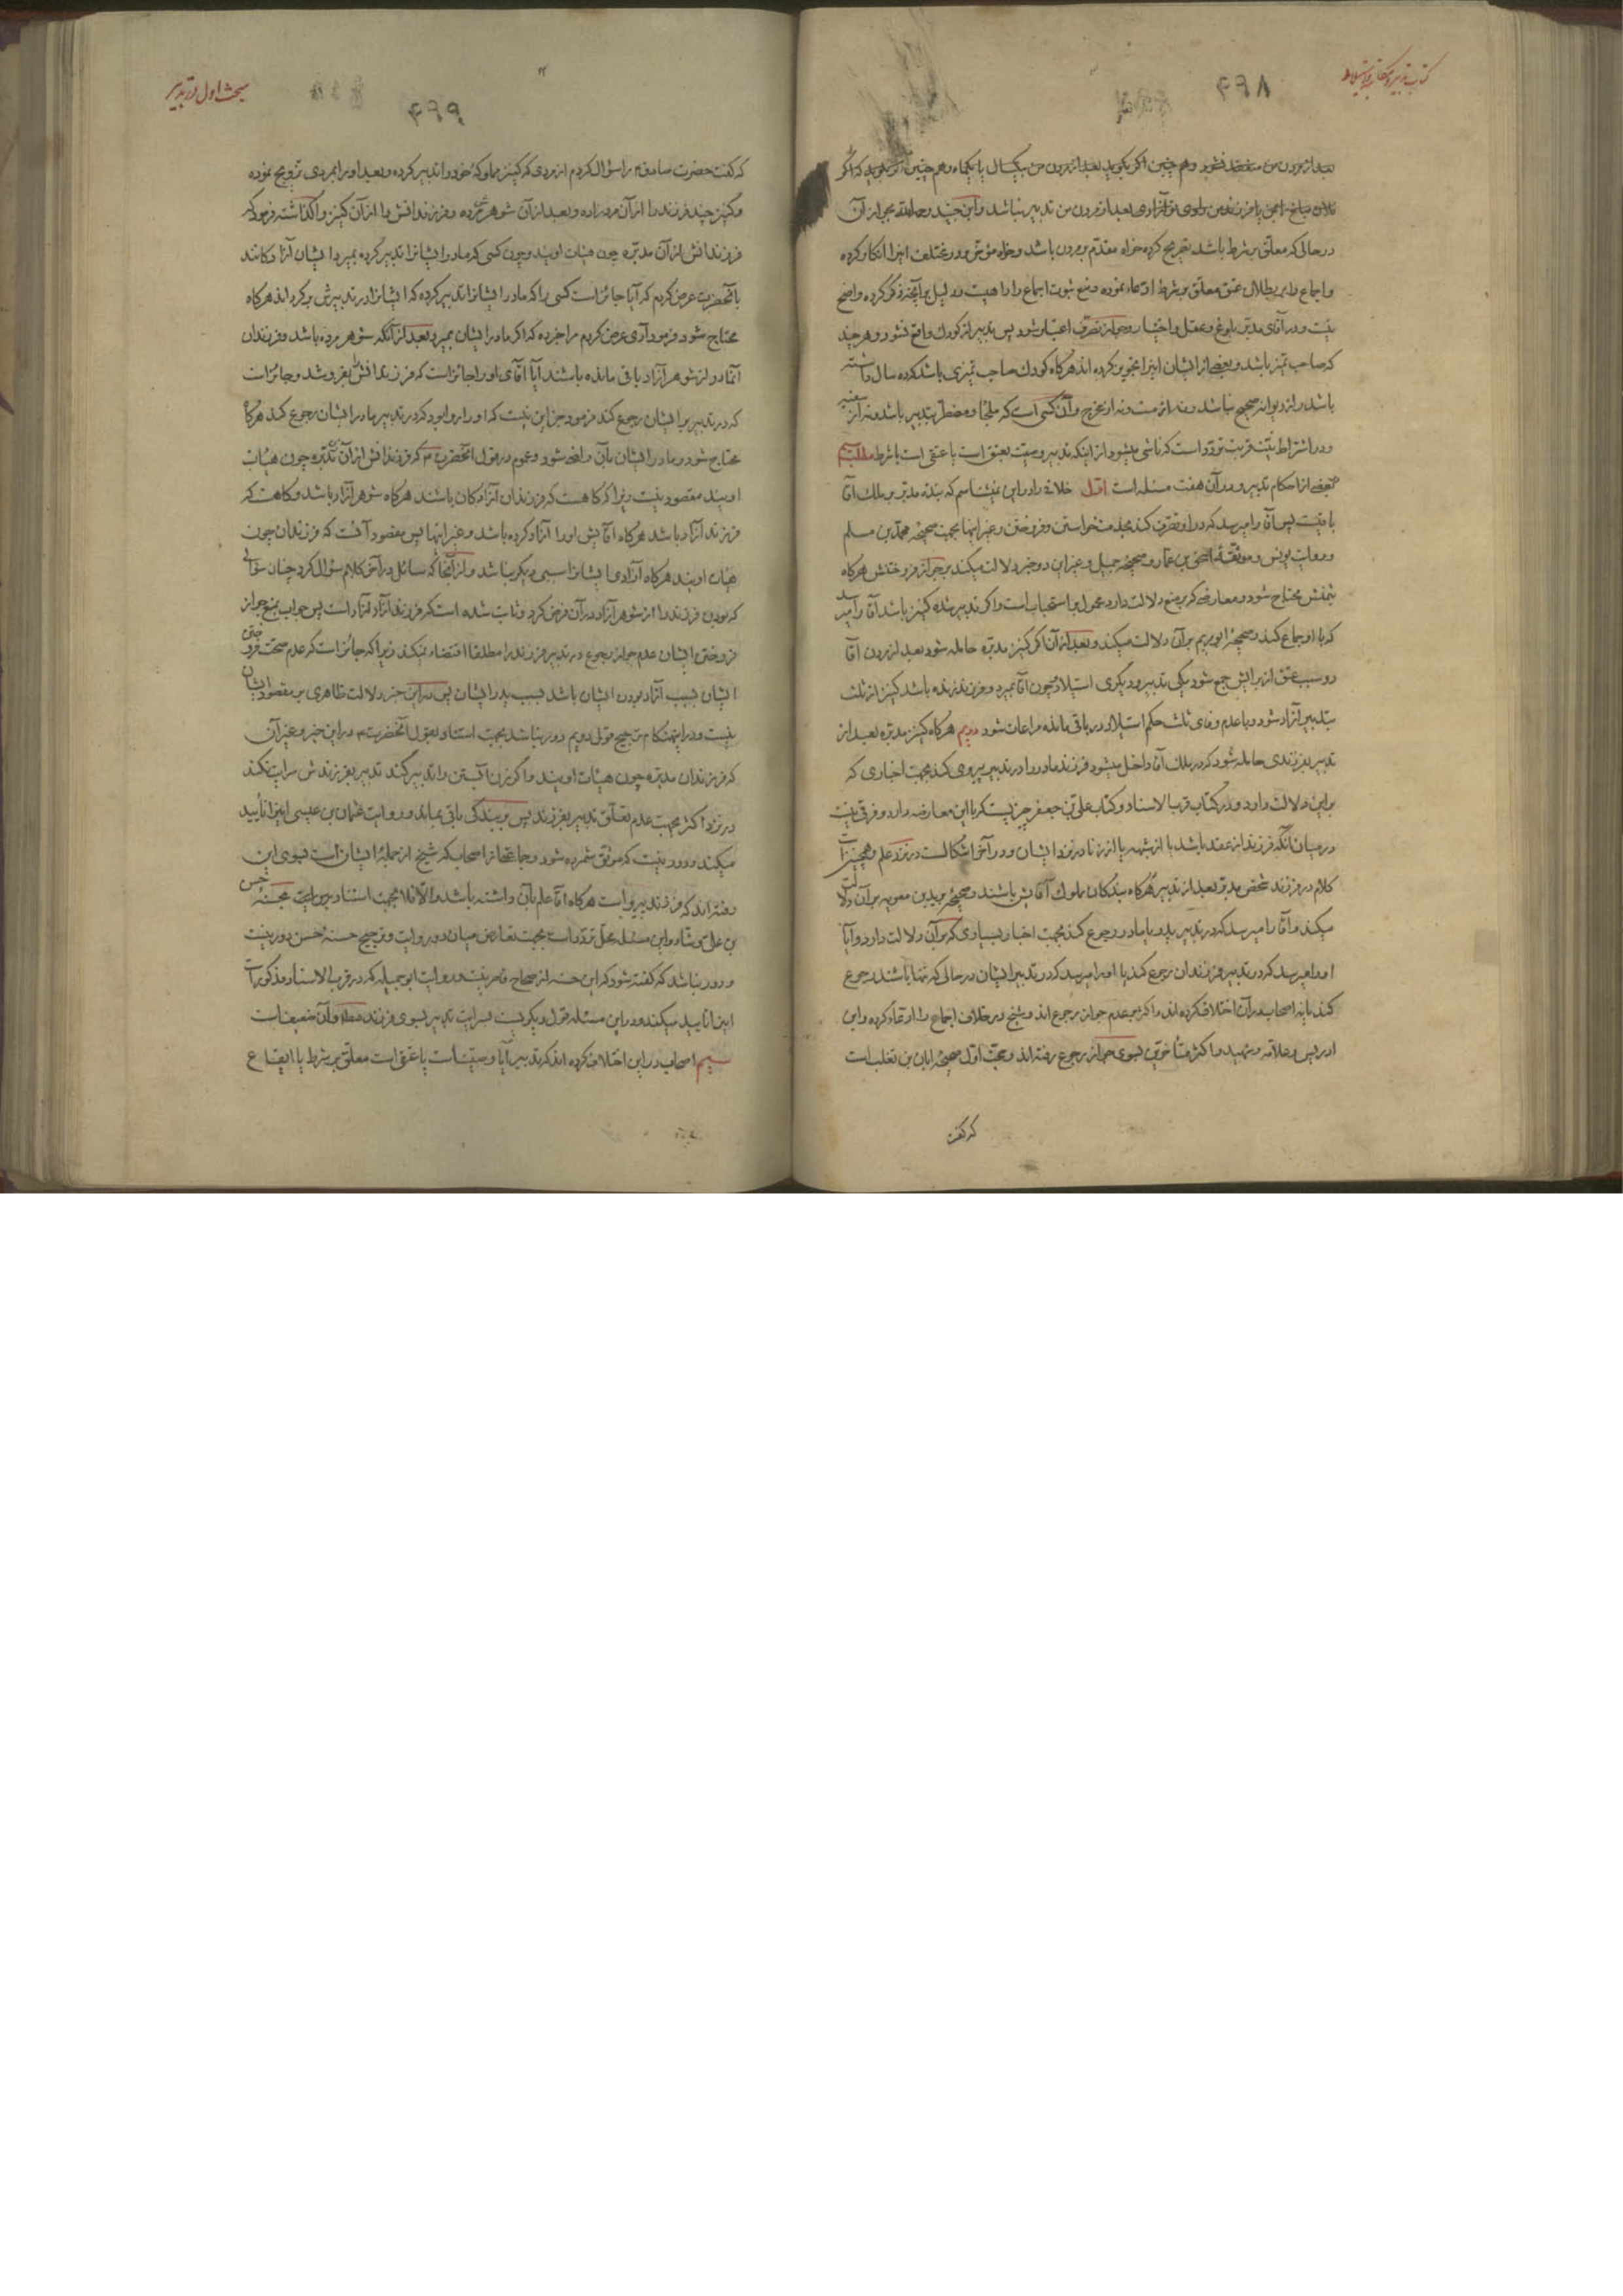 کتاب تدبیر و مکاتبه و استیلاد
۴۹۸
بعد از مردن من منعقد نشود و هم چنین اگر بگوید بعد از مردن من بیکسال یا یکماه و هم چنین اگر بگوید که اگر
در حالی که معلّق بر شرط باشد تصریح کرده خواه مقدّم بر مردن باشد و خواه مؤخر و در مختلف اینرا انکار کرده
و اجماع را بر بطلان عتق معلّق بر شرط ادّعاء نموده و منع ثبوت اجماع را راه هست و دلیل بر آنچه ذکر کرده واضح
نیست و در آقای مدبّر بلوغ و عقل و اختیار و جواز تصرّف اعتبار شود پس تدبیر از کودک واقع نشود و هر چند
که صاحب تمیز باشد و بعضی از ایشان اینرا تجویز کرده اند هرگاه کودک صاحب تمیزی باشد که ده سال داشته
باشد و از دیوانه صحیح نباشد و نه از مست و نه از مخرج و آن کسی است که ملجأ و مضطرّ بتدبیر باشد و نه از
و در اشتراط نیّت قربت تردّد است که ناشی میشود از اینکه تدبیر وصیّت بعتق است یا عتقی است با شرط مطلب
بعضی از احکام تدبیر و در آن هفت مسئله است اوّل خلافی را در این نمیشناسم که بنده مدبّر بر ملک آقا
باقیست پس آقا را میرسد که در او تصرّف کند بخدمت خواستن و فروختن و غیر اینها بجهت صحیحه محمّد بن مسلم
و روایت یونس و موثّقه اسحق بن عمّار و صحیحه جمیل و غیر این دو خبر دلالت میکند بر جواز فروختنش هرگاه
بثمنش محتاج شود و معارضی که بر منع دلالت دارد محمول بر استحباب است و اگر تدبیر شده کنیز باشد آقا را میرسد
که با او جماع کند و صحیحه ابو مریم بر آن دلالت میکند و بعد از آن اگر کنیز مدبّره حامله شود بعد از مردن آقا
دو سبب عتق از برایش جمع شود یکی تدبیر و دیگری استیلاد چون آقا بمیرد و فرزند زنده باشد کنیز از ثلث
بتدبیر آزاد شود و با عدم وفای ثلث حکم استیلاد در باقی مانده مراعات شود دویم هرگاه کنیز مدبّره بعد از
تدبیر بفرزندی حامله شود که در ملک آقا داخل میشود فرزند مادر را در تدبیر پیروی کند بجهت اخباری که
بر این دلالت دارد و در کتاب قرب الاسناد و کتاب علی بن جعفر چیزیست که با این معارضه دارد و فرقی نیست
در میان آنکه فرزند از عقد باشد یا از شبهه یا از زنا در نزد ایشان و در آخر اشکالست در نزد علم و همچنین است
کلام در فرزند شخص مدبّر بعد از تدبیر هرگاه بندکان مملوک آقایش باشند و صحیحه برید بن معویه بر آن دلالت
میکند و آقا را میرسد که در تدبیر پدر یا مادر رجوع کند بجهت اخبار بسیاری که بر آن دلالت دارد و آیا
او را میرسد که در تدبیر فرزندان رجوع کند یا او را میرسد که در تدبیر ایشان در حالی که تنها باشند رجوع
کند یا نه اصحاب در آن اختلاف کرده اند و اکثر بر عدم جواز رجوع اند و شیخ در خلاف اجماع را ادّعاء کرده و ابن
ادریس و علّامه و شهید و اکثر متأخرین بسوی جواز رجوع رفته اند و حجّت اوّل صحیحه ابان بن تغلب است
که گفت
مبحث اول در تدبیر
۴۹۹
که گفت حضرت صادق م را سؤال کردم از مردی که کنیز مملوکه خود را تدبیر کرده و بعد او را بمردی تزویج نموده
و کنیز چند فرزند را از آن مرد زاده و بعد از آن شوهر مرده و فرزندانش را از آن کنیز واگذاشته فرمود که
فرزندانش از آن مدبّره چون هیئات اویند و چون کسی که مادر ایشانرا تدبیر کرده بمیرد ایشان آزادکانند
بآنحضرت عرض کردم که آیا جائز است کسی را که مادر ایشانرا تدبیر کرده که ایشانرا در تدبیرش برکرداند هرگاه
محتاج شود فرمود آری عرض کردم مرا خبر ده که اگر مادر ایشان بمیرد بعد از آنکه شوهر مرده باشد و فرزندان
آنمادر از شوهر آزاد باقی مانده باشند آیا آقای او را جائز است که فرزندانش را بفروشد و جائز است
که در تدبیر بر ایشان رجوع کند فرمود جز این نیست که او را روا بود که در تدبیر مادر ایشان رجوع کند هرگاه
محتاج شود و مادر ایشان بآن راضی شود و عموم در قول آنحضرت م که فرزندانش از آن مدبّره چون هیئات
اویند مقصود نیست زیرا که گاهست که فرزندان آزادکان باشند هرگاه شوهر آزاد باشد و گاهست که
فرزند آزاد باشد هرگاه آقایش او را آزاد کرده باشد و غیر اینها پس مقصود آنست که فرزندان چون
هیئات اویند هرگاه آزادی ایشانرا سببی دیگر نباشد و از آنجا که سائل در آخر کلام سؤال کرد چنان سؤالی
که بودن فرزند را از شوهر آزاد در آن فرض کرد و ثابت شده است که فرزند آزاد آزاد است پس جواب بمنع جواز
فروختن ایشان عدم جواز رجوع در تدبیر فرزند را مطلقا اقتضاء نمیکند زیرا که جائز است که عدم صحّت فروختن
ایشان بسبب آزاد بودن ایشان باشد بسبب پدر ایشان پس در این خبر دلالت ظاهری بر مقصود ایشان
نیست و در اینهنگام ترجیح قول دویم دور نباشد بجهت استناد بقول آنحضرت م در این خبر و غیر آن
که فرزندان مدبّره چون هیئات اویند و اگر زن آبستن را تدبیر کند تدبیر بفرزندش سرایت نکند
در نزد اکثر بجهت عدم تعلّق تدبیر بفرزند پس بر بندگی باقی بماند و روایت عثمان بن عیسی اینرا تأیید
میکند و دور نیست که موثّق شمرده شود و جماعتی از اصحاب که شیخ از جمله ایشان است بسوی این
رفته اند که فرزند پیرو است هرگاه آقا علم بآن داشته باشد و الّا فلا بجهت استناد بروایت حسنه حسن
بن علی وشّاء و این مسئله محلّ تردّد است بجهت تعارض میان دو روایت و ترجیح حسنه حسن دور نیست
و دور نباشد که گفته شود که این حسنه از صحاح قاصر نیست و روایت ابو جمیله که در قرب الاسناد مذکور است
اینرا تایید میکند و در این مسئله قول دیگریست بسرایت تدبیر بسوی فرزند مطلقا و آن ضعیف است
سیم اصحاب در این اختلاف کرده اند که تدبیر آیا وصیّت است یا عتق است معلّق بر شرط یا ایقاع